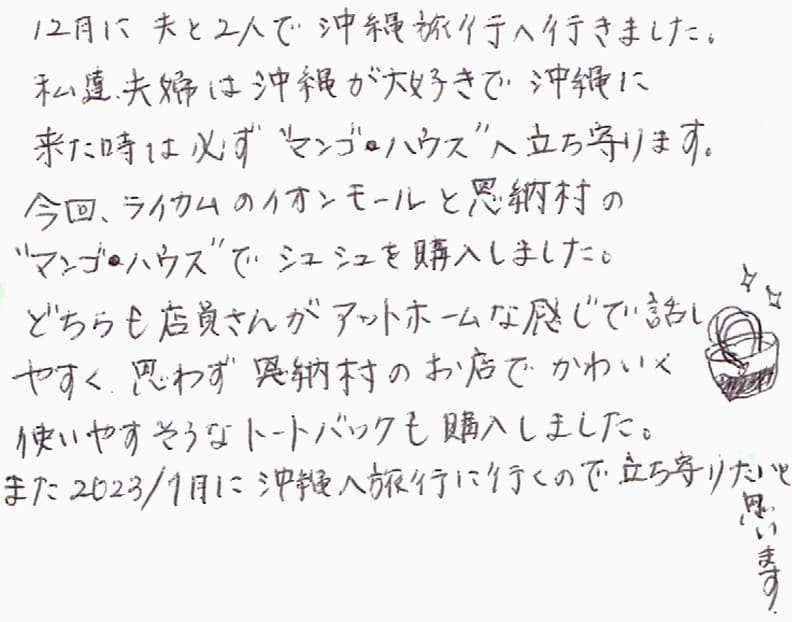 12月に夫と2人で沖縄旅行へ行きました。
私達夫婦は沖縄が大好きで沖縄に
来た時は必ず"マンゴ・ハウス"へ立ち寄ります。
今回、ライカムのイオンモールと恩納村の
"マンゴ・ハウス"でシュシュを購入しました。
どちらも店員さんがアットホームな感じで話し
やすく、思わず恩納村のお店でかわいく
使いやすそうなトートバックも購入しました。
また2023/1月に沖縄へ旅行に行くので立ち寄りたいと
思います。